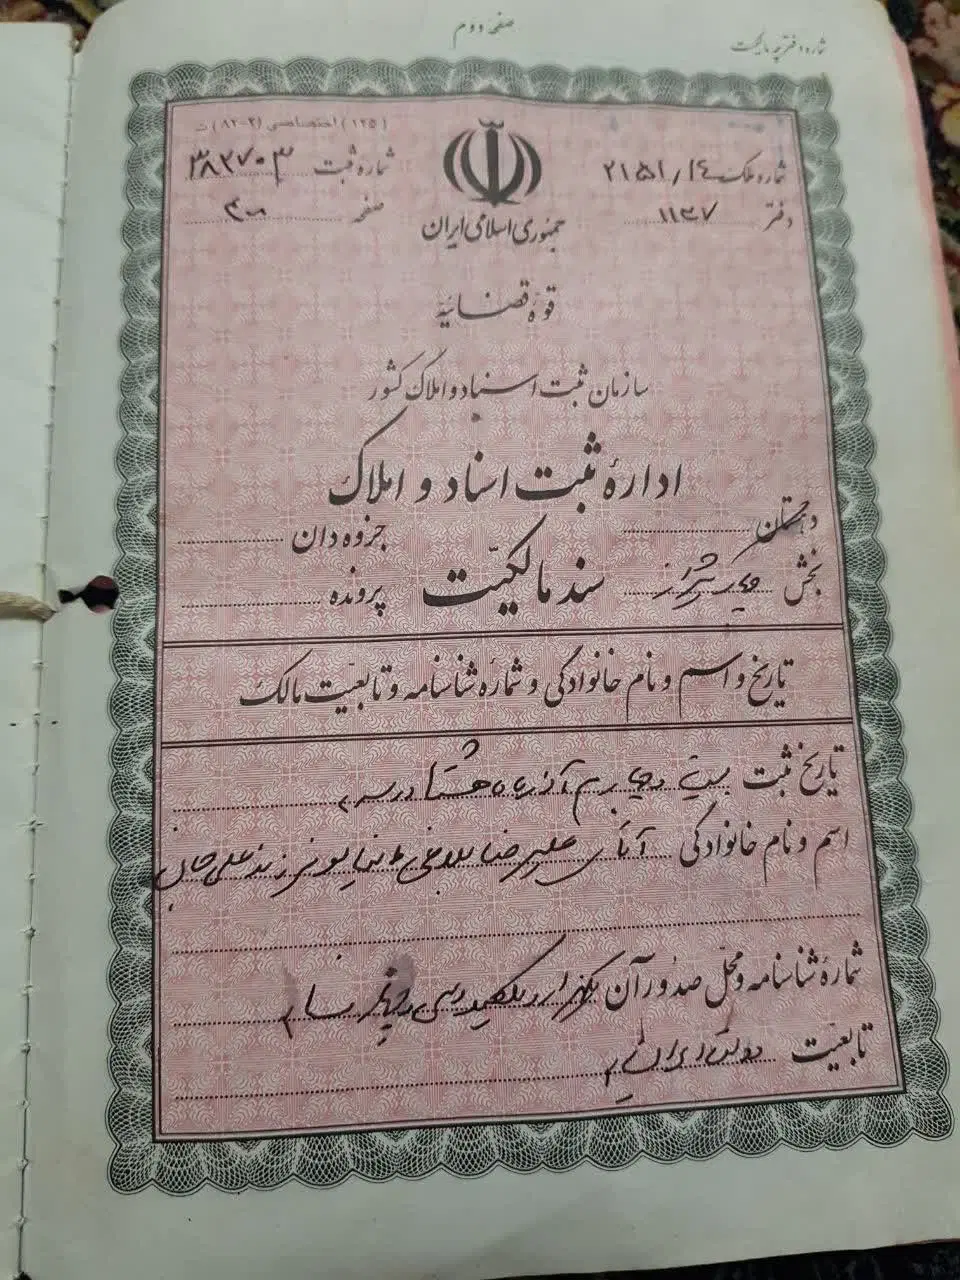 صفحه دوم
شماره دفترچه مالکیت
(۱۲۵) اختصاصی (۳-۸۲) ث
شماره ملک ۲۱۵۱/۱۴
شماره ثبت
دفتر ۱۱۳۷
صفحه
جمهوری اسلامی ایران
قوه قضائیه
سازمان ثبت اسناد و املاک کشور
اداره ثبت اسناد و املاک
دهستان
جزوه دان
بخش چهار شیراز
سند مالکیت
پرونده
تاریخ و اسم و نام خانوادگی و شماره شناسنامه و تابعیت مالک
تاریخ ثبت بیست و چهارم آذر ماه هشتاد و سه
اسم و نام خانوادگی آقای علیرضا فرزند علی جان
شماره شناسنامه و محل صدور آن یکهزار و یکصد و سی و چهار
تابعیت دولت ایران